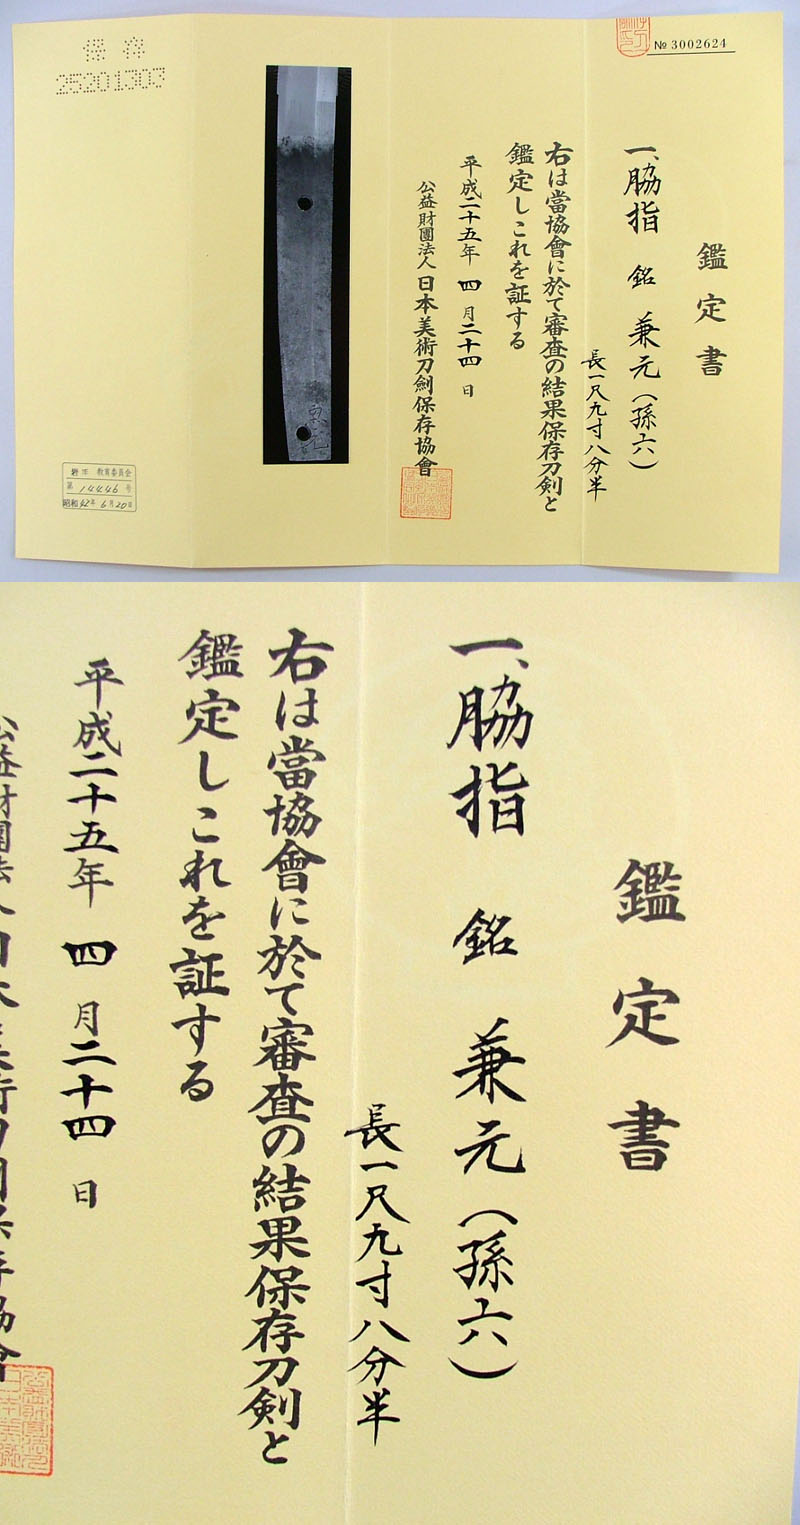 № 3002624
鑑定書
一、脇指 銘 兼元（孫六）
長一尺九寸八分半
右は當協會に於て審査の結果保存刀剣と
鑑定しこれを証する
平成二十五年 四月二十四日
公益財團法人日本美術刀劍保存協會
保存
25201303
教育委員会
第 14446 号
昭和42年6月20日
鑑定書
一、脇指 銘 兼元（孫六）
長一尺九寸八分半
右は當協會に於て審査の結果保存刀剣と
鑑定しこれを証する
平成二十五年 四月二十四日